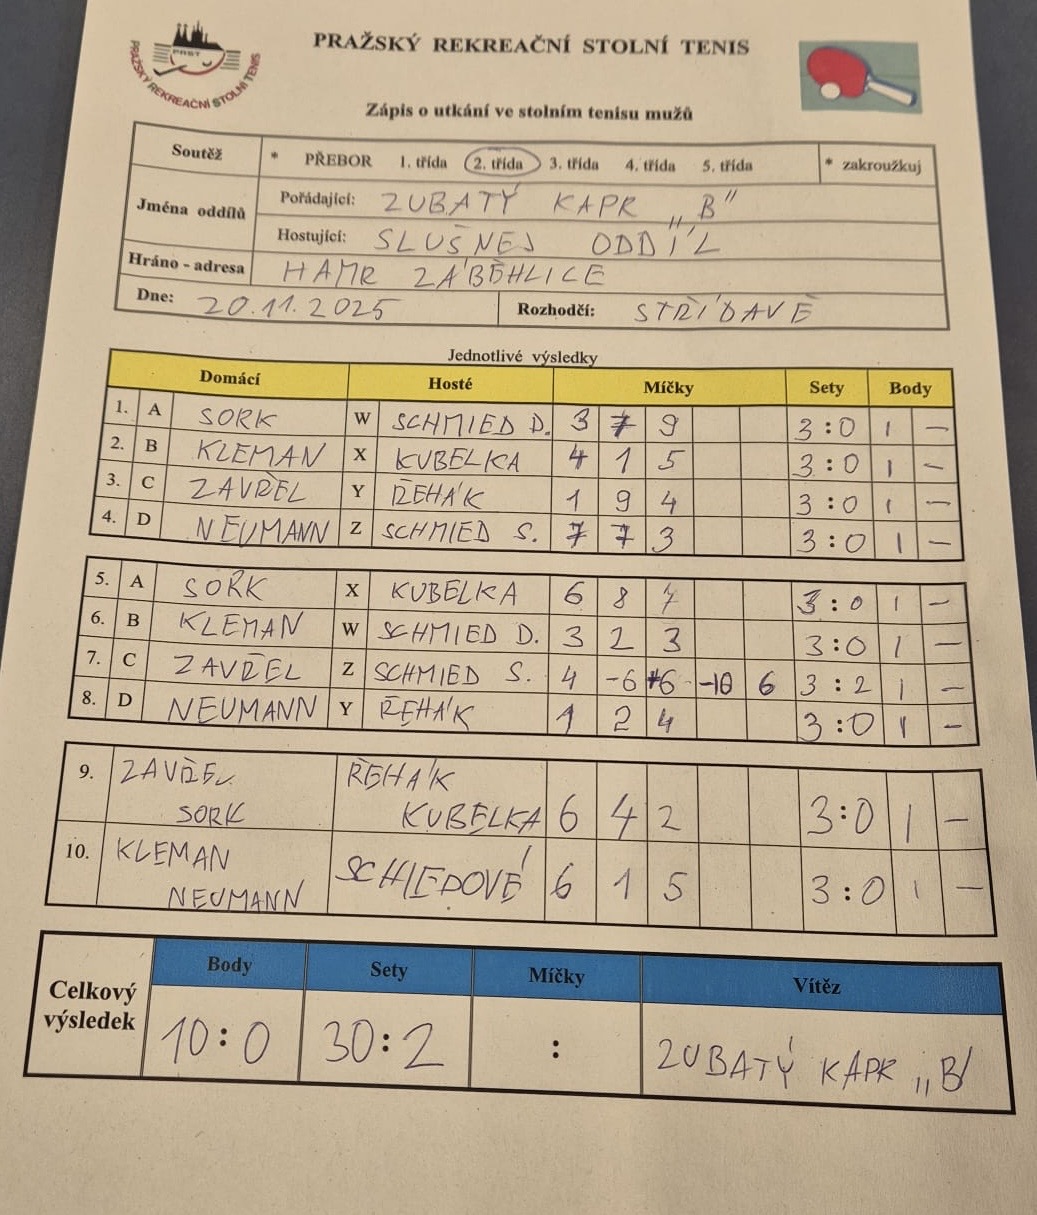 PRST
PRAŽSKÝ REKREAČNÍ STOLNÍ TENIS
PRAŽSKÝ REKREAČNÍ STOLNÍ TENIS
Zápis o utkání ve stolním tenisu mužů
Soutěž * PŘEBOR 1. třída 2. třída 3. třída 4. třída 5. třída * zakroužkuj
Jména oddílů Pořádající: ZUBATÝ KAPR „B"
Hostující: SLUŠNEJ ODDÍL
Hráno - adresa HAMR ZÁBĚHLICE
Dne: 20.11.2025 Rozhodčí: STŘÍDAVĚ
Jednotlivé výsledky
Domácí Hosté Míčky Sety Body
1. A SORK W SCHMIED D. 3 7 9 3:0 1 –
2. B KLEMAN X KUBELKA 4 1 5 3:0 1 –
3. C ZAVŘEL Y ŘEHÁK 1 9 4 3:0 1 –
4. D NEUMANN Z SCHMIED S. 7 7 3 3:0 1 –
5. A SORK X KUBELKA 6 8 7 3:0 1 –
6. B KLEMAN W SCHMIED D. 3 2 3 3:0 1 –
7. C ZAVŘEL Z SCHMIED S. 4 -6 6 -10 6 3:2 1 –
8. D NEUMANN Y ŘEHÁK 1 2 4 3:0 1 –
9. ZAVŘEL ŘEHÁK
SORK KUBELKA 6 4 2 3:0 1 –
10. KLEMAN
NEUMANN 6 1 5 3:0 1 –
Body Sety Míčky Vítěz
Celkový výsledek 10:0 30:2 : ZUBATÝ KAPR „B"